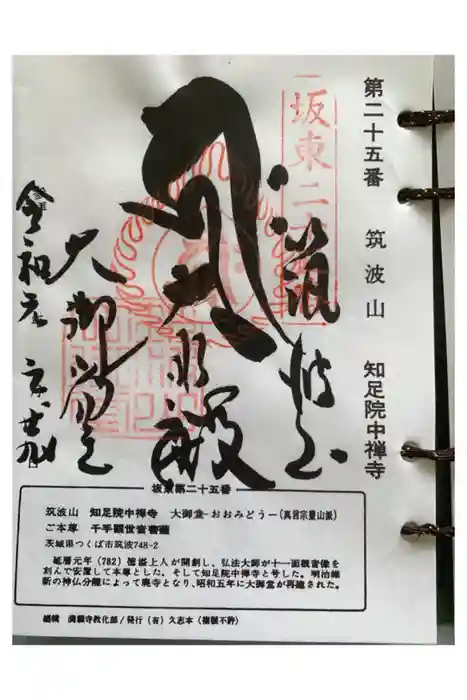 第二十五番 筑波山 知足院中禅寺
坂東二
筑波山
大悲殿
大御堂
令和元
坂東第二十五番
筑波山 知足院中禅寺 大御堂-おおみどうー(真言宗豊山派)
ご本尊 千手観世音菩薩
茨城県つくば市筑波748-2
延暦元年(782)徳溢上人が開創し、弘法大師が十一面観音像を
刻んで安置して本尊とした。そして知足院中禅寺と号した。明治維
新の神仏分離によって廃寺となり、昭和五年に大御堂が再建された。
編輯 満願寺教化部/発行(有)久志本(複製不許)